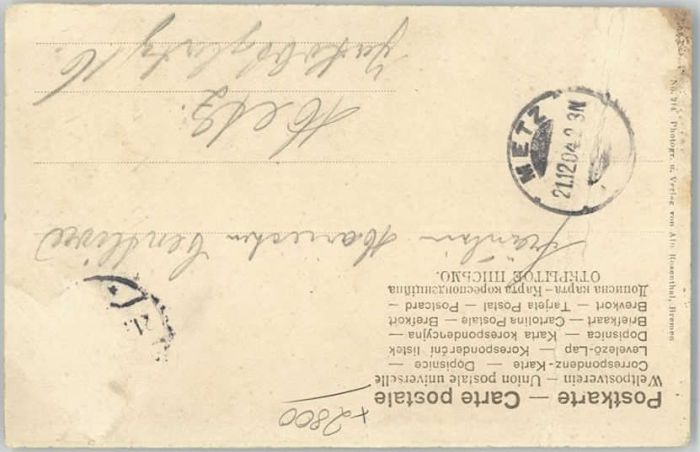 Postkarte — Carte postale
Weltpostverein — Union postale universelle
Correspondenz-Karte — Dopisnice
Levelező-Lap — Korespondenční lístek
Dopisnica — Karta korespondencyjna
Briefkaart — Cartolina Postale — Brefkort
Brevkort — Tarjeta Postal — Postcard
Дописна карта — Карта кореспонденційна
ОТКРЫТОЕ ПИСЬМО.
+2800
Fräulein Mariechen
Metz.
16.
METZ
21.12.04.2-3N
21.
Photogr. u. Verlag von Alb. Rosenthal, Bremen